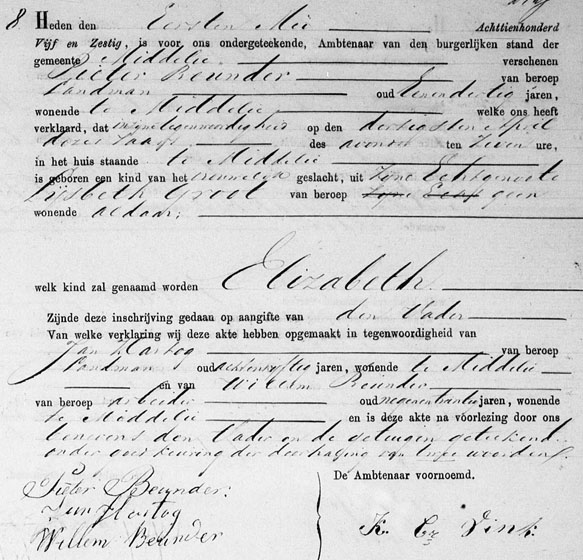 8 Heden den Eersten Mei Achttienhonderd
Vijf en Zestig, is voor ons ondergeteekende, Ambtenaar van den burgerlijken stand der
gemeente Middelie verschenen
Pieter Beunder van beroep
Landman oud Eenendertig jaren,
wonende te Middelie welke ons heeft
verklaard, dat in zijne tegenwoordigheid op den dertigsten April
dezes Jaars des avonds ten Zeven ure,
in het huis staande te Middelie
is geboren een kind van het vrouwelijk geslacht, uit Zijne Echtgenoote
Lijsbeth Groot van beroep Zijne Echt geen
wonende aldaar;
welk kind zal genaamd worden Elizabeth
Zijnde deze inschrijving gedaan op aangifte van den Vader
Van welke verklaring wij deze akte hebben opgemaakt in tegenwoordigheid van
Jan Hartog van beroep
Landman oud achtenvijftig jaren, wonende te Middelie
en van Willem Beunder
van beroep arbeider oud negenentwintig jaren, wonende
te Middelie en is deze akte na voorlezing door ons
benevens den Vader en de getuigen geteekend
onder goedkeuring der doorhaling van twee woorden
Pieter Beunder
Jan Hartog
Willem Beunder
De Ambtenaar voornoemd.
K. Cz Vink